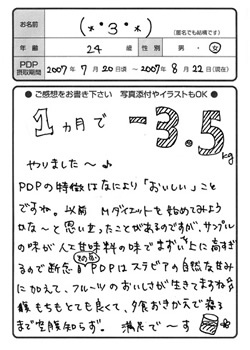 お名前
(*・3・*)
(匿名でも結構です)
年齢 24歳 性別 男・女
PDP摂取期間 2007年7月20日頃 〜 2007年8月22日(現在)
●ご感想をお書き下さい 写真添付やイラストもOK●
1ヵ月で −3.5kg
やりました〜♪
PDPの特徴はなにより「おいしい」こと
ですね。以前 Mダイエットを始めてみよう
かな〜と思い立ったことがあるのですが、サンプル
の味が人工甘味料の味でまずい上に高すぎ
るので断念。その点PDPはステビアの自然な甘み
に加えて、フルーツのおいしさが生きてますね♪
腹もちもとても良くて、夕食おきかえで寝る
まで空腹知らず。満足で〜す